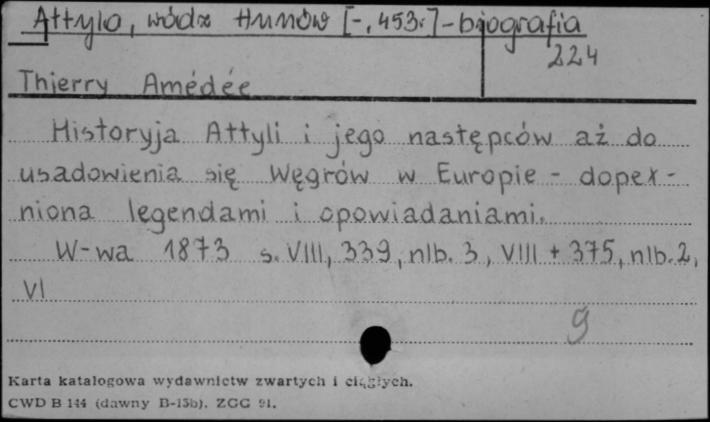 Attyla, wódz Hunów [-, 453r.] - biografia
224
Thierry Amédée
Historyja Attyli i jego następców aż do
usadowienia się Węgrów w Europie - dopeł-
niona legendami i opowiadaniami.
W-wa 1873 s. VIII, 339, nlb. 3, VIII + 375, nlb. 2,
VI
9
Karta katalogowa wydawnictw zwartych i ciągłych.
CWD B 144 (dawny B-15b). ZGG 91.